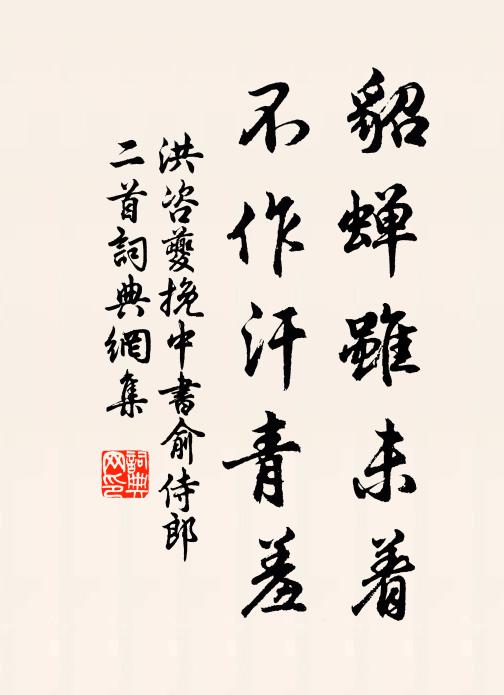 貂蝉雖未着
不作汗青羞
洪咨夔挽中書俞侍郎
二首詞典網集
詞典
网印